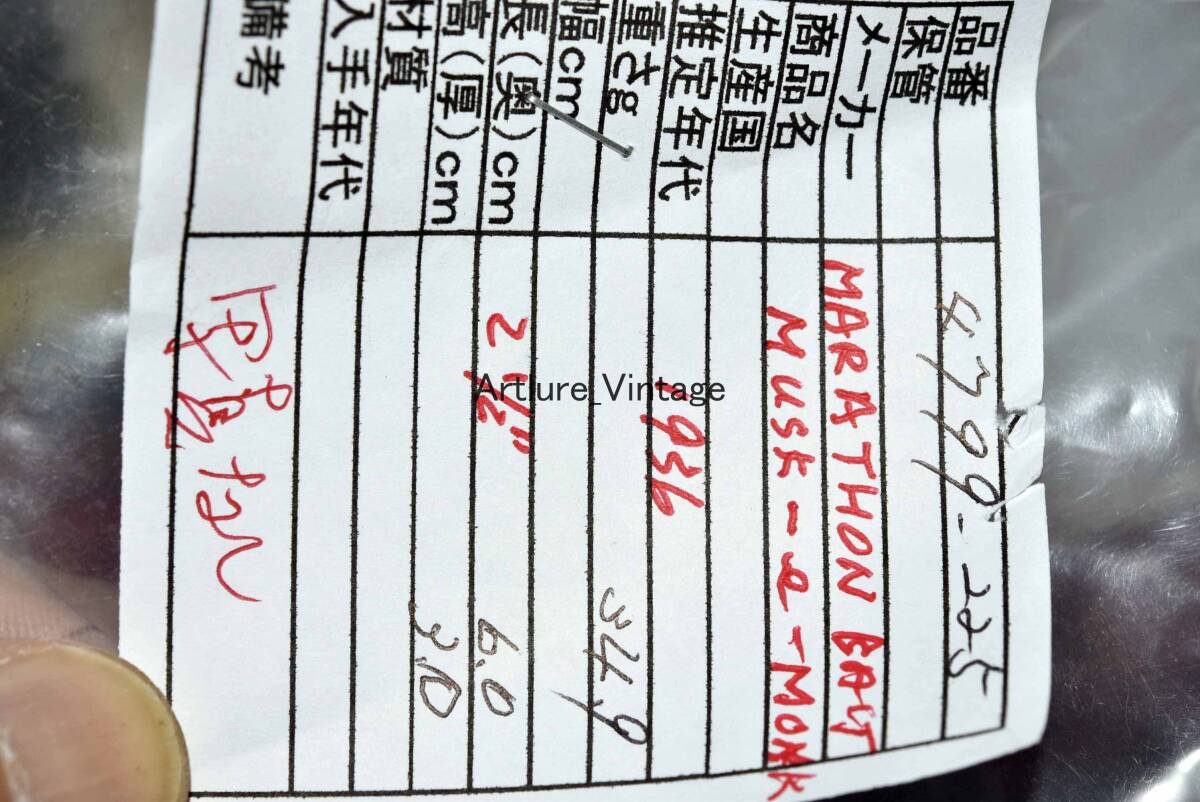 品番 4799-225
保管
メーカー MARATHON BAIT
商品名 MUSK-a-MONK
生産国
推定年代 1936
重さg 34.9
幅cm
長(奥)cm 2 1/2" 6.0
高(厚)cm 3.10
材質
入手年代
備考
Art.lure_Vintage